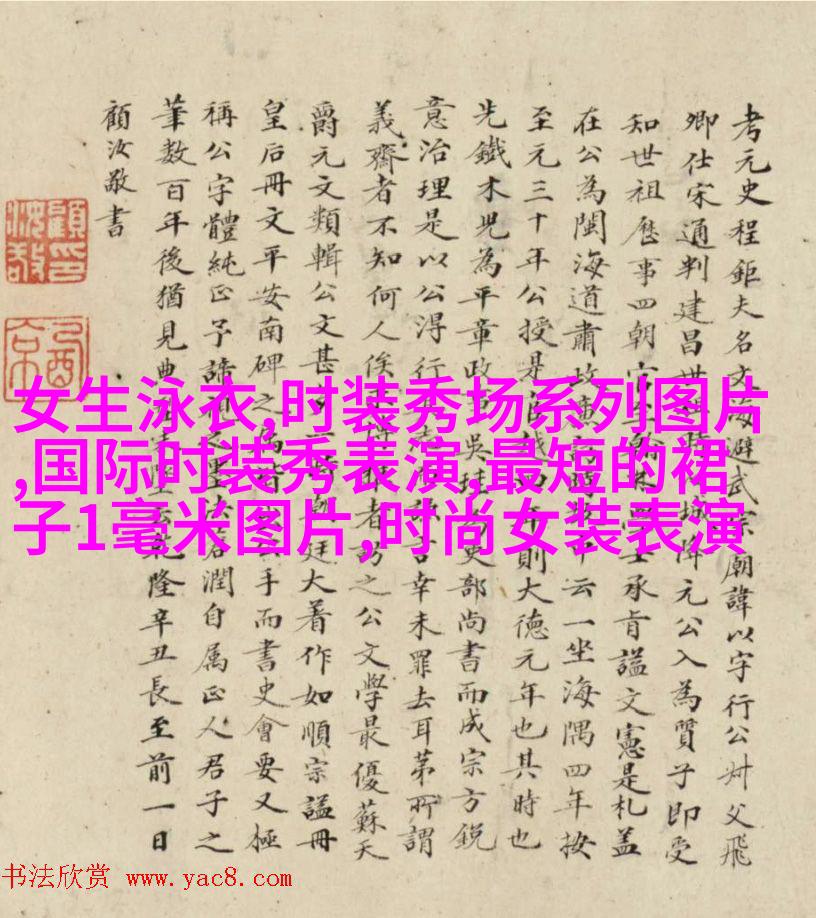 考元史程鉅夫名文海避武宗廟諱以字行公叔父飛
卿仕宋通判建昌世城降元公入為質子即受
知世祖歷事四朝官翰林學士承肯諡文憲是札蓋
在公為閩海道肅政云一坐海隅四年按
至元三十年公授是官越四年則大德元年也其時也
先鐵木兒為平章政事吳吏部尚書而成宗方銳
意治理是以公得行言幸未罪去耳苐所謂
義齋者不知何人俟者訪之公文學最優蘇天
爵元文類輯公文甚廷大著作如順宗諡冊
皇后冊文平安南碑之手而書史會要又極
稱公字體純正予諦潤自属正人君子之
筆數百年後猶見典隆辛丑長至前一日
顧汝敬書
顧印汝敬
女生泳衣,时装秀场系列图片
,国际时装秀表演,最短的裙
子1毫米图片,时尚女装表演
书法欣赏 www.yac8.com